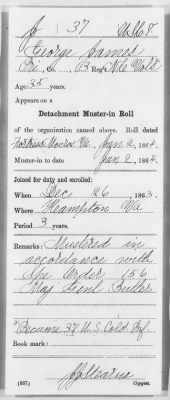 J 37 U.S.C.T.
George James
Pvt., Co. B Reg't N.C. Vols.
Age 35 years.
Appears on a
Detachment Muster-in Roll
of the organization named above. Roll dated
Fortress Monroe Va, Jan 2, 1864.
Muster-in to date Jan 2, 1864.
Joined for duty and enrolled:
When Dec 26, 1863.
Where Hampton Va
Period 3 years.
Remarks: Mustered in
accordance with
Spe Order 156
Maj Genl Butler
Became 37 U.S. Cold. Inf.
Book mark:
(357) Copyist.